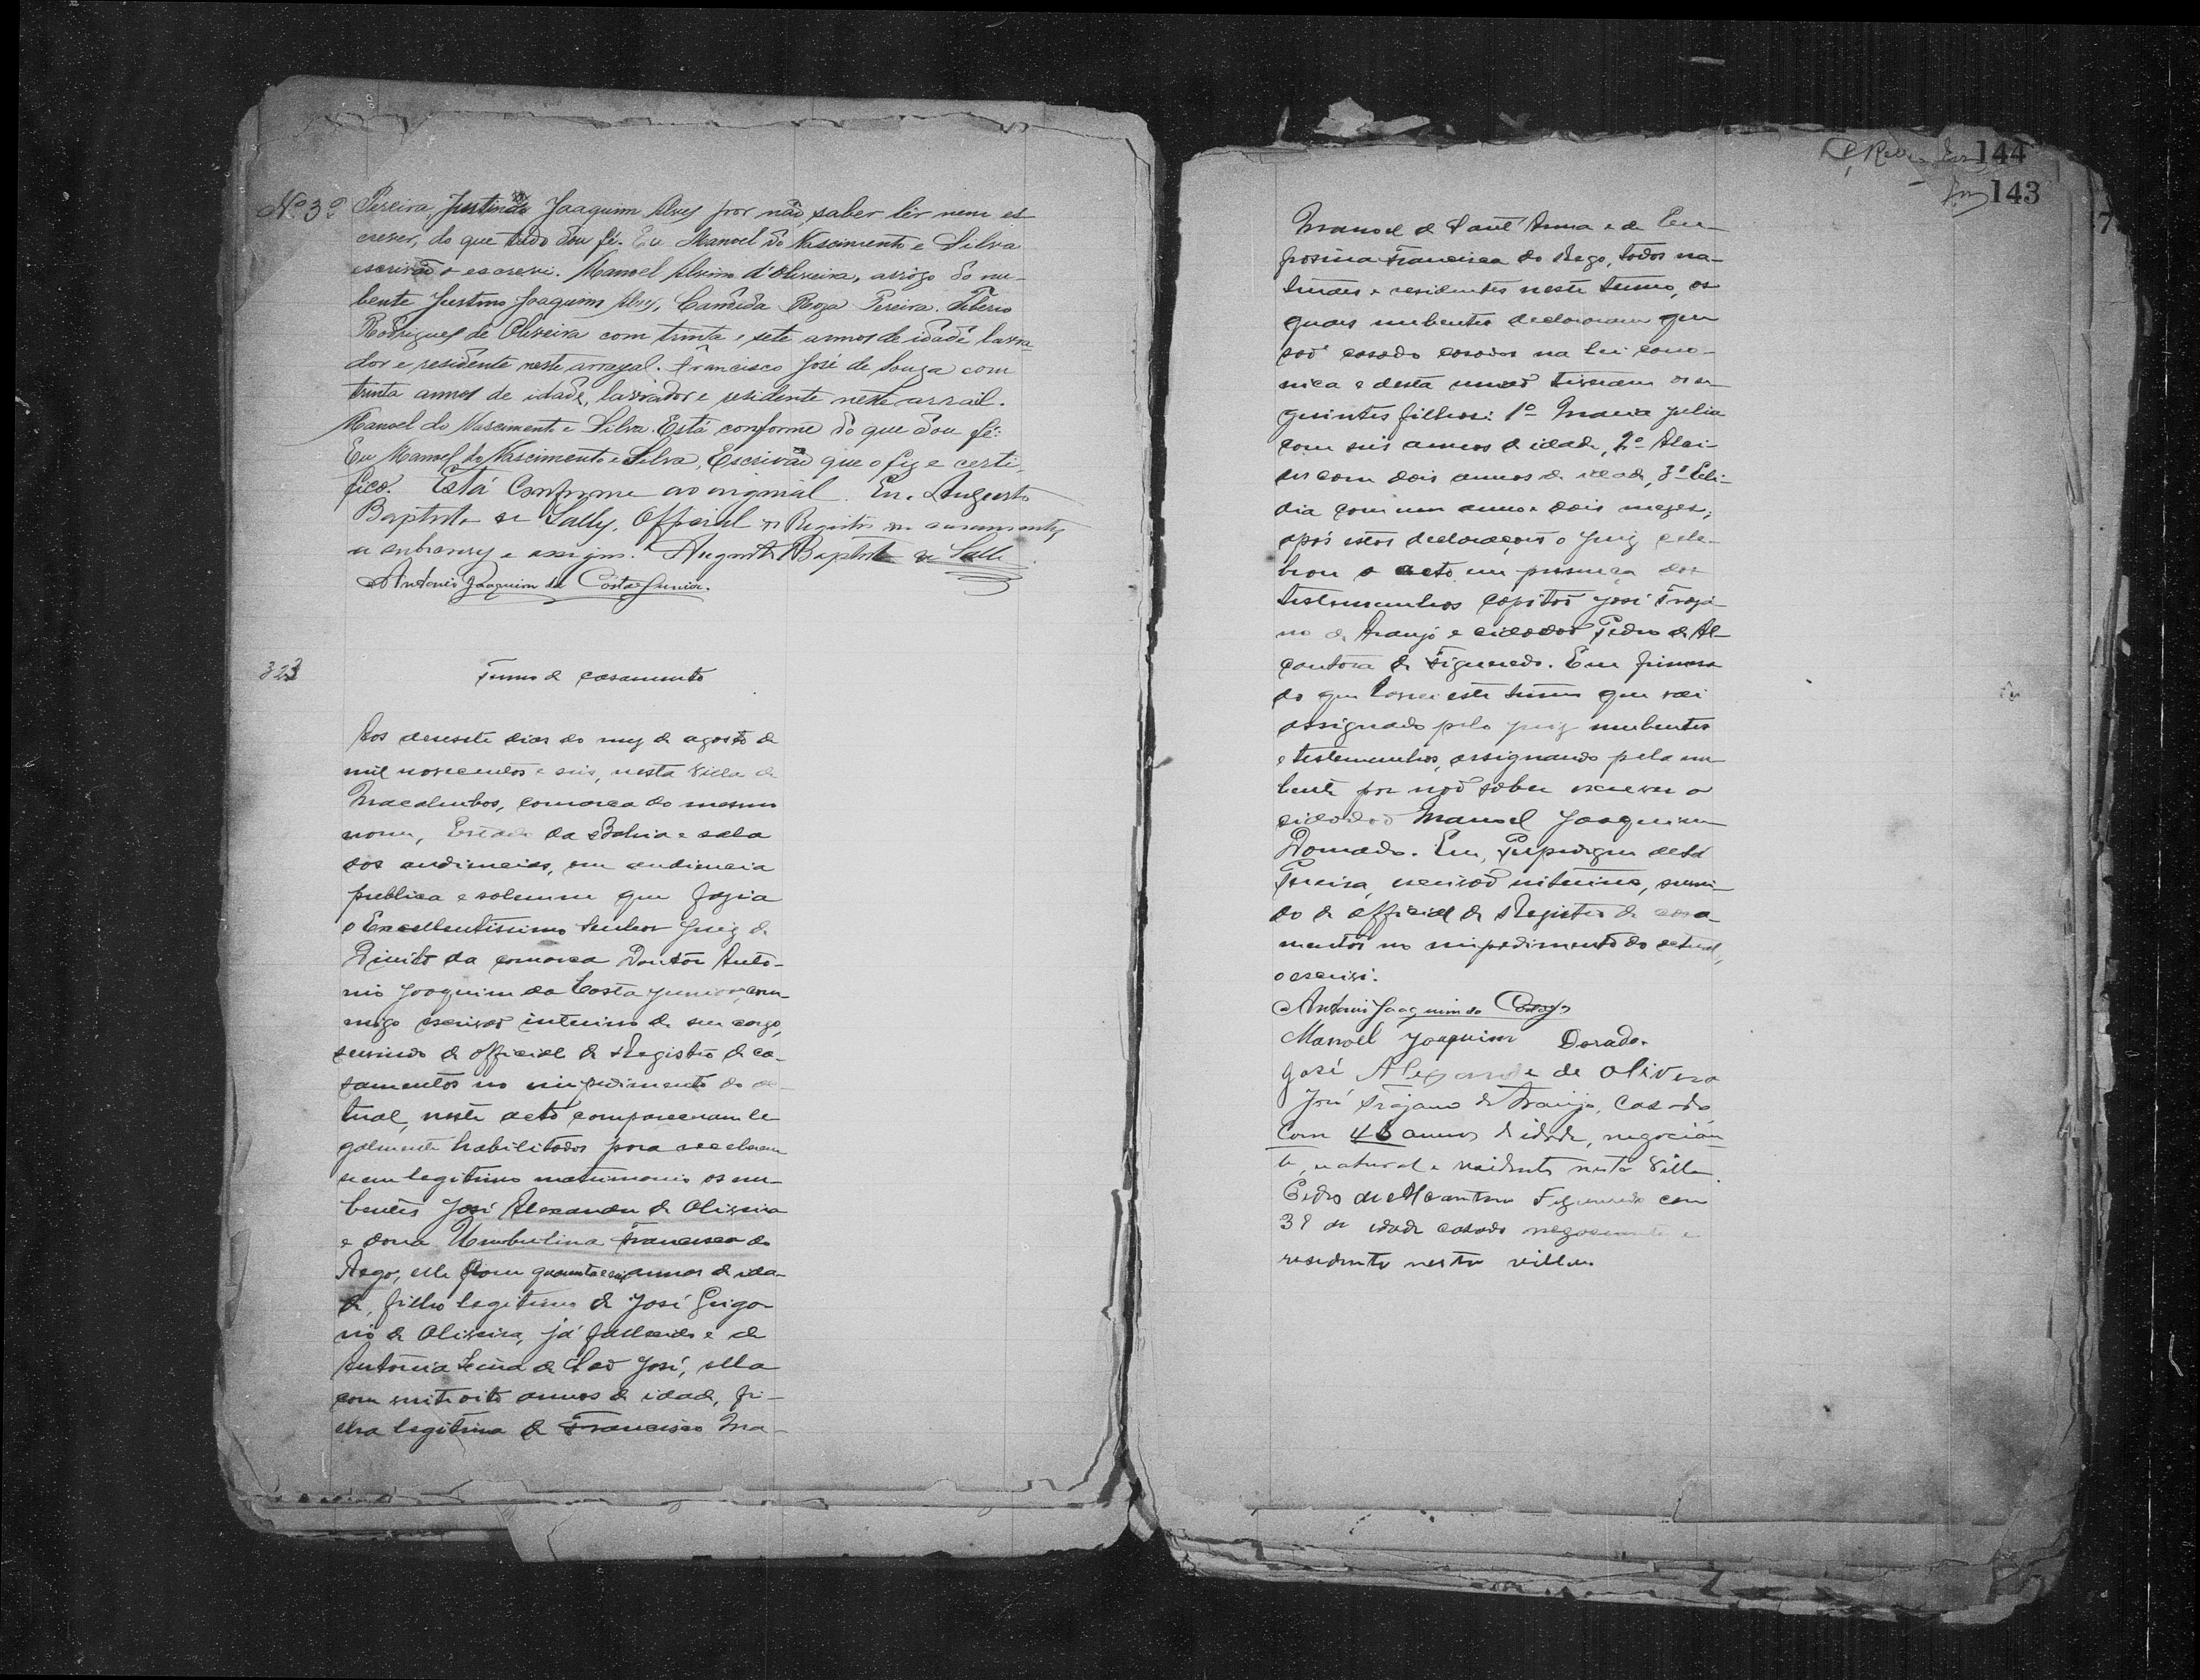 Nº 32
Pereira, Justino Joaquim Alves por não saber lêr nem es
crever, do que tudo dou fé. Eu Manoel do Nascimento e Silva
escrivão o escrevi. Manoel Alvim d'Oliveira, arrôgo do nu-
bente Justino Joaquim Alves, Candida Roza Pereira. Tiberio
Rodrigues de Oliveira com trinta e sete annos de idade lavra-
dor e residente neste arrayal. Francisco José de Souza com
trinta annos de idade, lavrador e residente neste arrail.
Manoel do Nascimento e Silva. Está conforme do que dou fé:
Eu Manoel do Nascimento e Silva, Escrivão que o fiz e certi-
fico. Está Conforme ao original. Eu. Augusto
Baptista de Sally, Official do Registro de casamentos
o subscrevy e assigno. Augusto Baptista de Sally
Antonio Joaquim da Costa Junior.
323
Termo de casamento
Aos desesete dias do mez de agosto de
mil novecentos e seis, nesta villa de
Macahubas, comarca do mesmo
nome, Estado da Bahia e sala
das audiencias, em audiencia
publica e solemne que fazia
o Excellentissimo Senhor Juiz de
Direito da comarca Doutor Anto-
nio Joaquim da Costa Junior, com-
migo escrivão interino de seu cargo,
servindo de official de Registro de ca-
samentos no impedimento do ac-
tual, neste acto compareceram le
galmente habilitados para receberem
se em legitimo matrimonio os nu-
bentes José Alexandre de Oliveira
e dona Umbulina Francisca do
Rego, elle com quarenta e seis annos de ida-
de, filho legitimo de José Grigo
rio de Oliveira, já fallecido e de
Antonia de São José, ella
com vinte oito annos de idade, fi-
lha legitima de Francisco Ma-
144
143
Manoel de Sant'Anna e de Eu-
frosina Francisca do Rego, todos na-
turaes e residentes neste termo, os
quaes nubentes declararam que
são casado casados na lei cano-
nica e desta união tiveram os se
guintes filhos: 1º Maria Julia
com seis annos de idade, 2º Alci-
des com dois annos de idade, 3º Eli-
dia com um anno e dois mezes;
após estas declarações o Juiz cele-
brou o acto em presença das
testemunhas capitão José Traja-
no de Araujo e cidadão Pedro de Al-
cantara de Figueredo. Em firmesa
do que lavrei este termo que vae
assignado pelo juiz nubentes
e testemunhas, assignando pela nu
bente por não saber escrever o
cidadão Manoel Joaquim
Dourado. Eu,
Pereira, escrivão interino, servin-
do de official de Registro de casa-
mentos no impedimento do actual,
o escrivi.
Antonio Joaquim da Costa Jr
Manoel Joaquim Dorado.
José Alexandre de Olivera
José Trajano de Araujo, Casado,
com 46 annos de idade, negocian-
te, natural e residente nesta Villa.
Pedro de Alcantara Figueredo com
38 de idade casado negociante e
residente nesta villa.